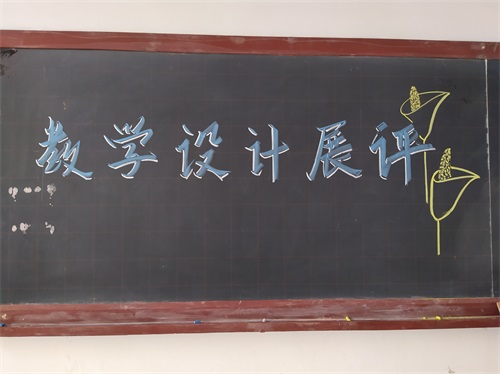 教学设计展评